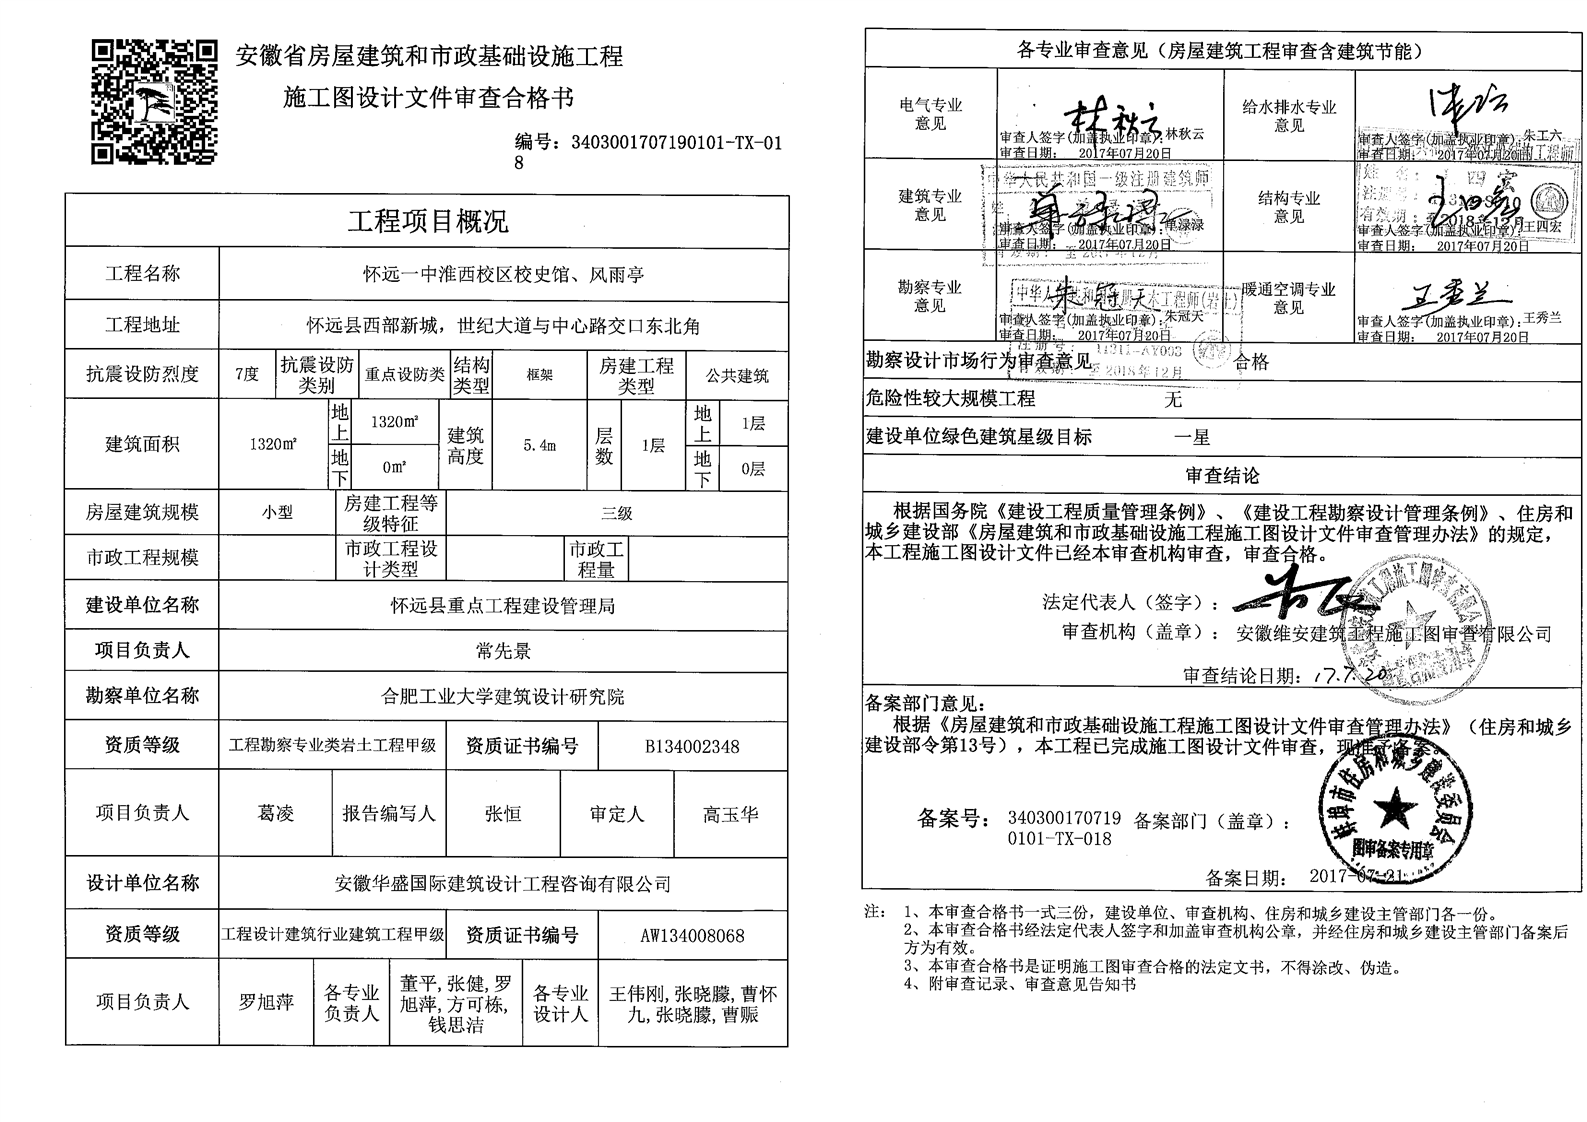 安徽省房屋建筑和市政基础设施工程
施工图设计文件审查合格书
编号：3403001707190101-TX-01
8
工程项目概况
工程名称 怀远一中淮西校区校史馆、风雨亭
工程地址 怀远县西部新城，世纪大道与中心路交口东北角
抗震设防烈度 7度 抗震设防类别 重点设防类 结构类型 框架 房建工程类型 公共建筑
建筑面积 1320㎡ 地上 1320㎡ 地下 0㎡ 建筑高度 5.4m 层数 1层 地上 1层 地下 0层
房屋建筑规模 小型 房建工程等级特征 三级
市政工程规模 市政工程设计类型 市政工程量
建设单位名称 怀远县重点工程建设管理局
项目负责人 常先景
勘察单位名称 合肥工业大学建筑设计研究院
资质等级 工程勘察专业类岩土工程甲级 资质证书编号 B134002348
项目负责人 葛凌 报告编写人 张恒 审定人 高玉华
设计单位名称 安徽华盛国际建筑设计工程咨询有限公司
资质等级 工程设计建筑行业建筑工程甲级 资质证书编号 AW134008068
项目负责人 罗旭萍 各专业负责人 董平,张健,罗旭萍,方可栋,钱思洁 各专业设计人 王伟刚,张晓朦,曹怀九,张晓朦,曹赈
各专业审查意见（房屋建筑工程审查含建筑节能）
电气专业意见 林秋云
审查人签字(加盖执业印章):林秋云
审查日期： 2017年07月20日
给水排水专业意见
审查人签字(加盖执业印章):朱工六
审查日期： 2017年07月20日
建筑专业意见
中华人民共和国一级注册建筑师
审查人签字(加盖执业印章):单渌渌
审查日期： 2017年07月20日
结构专业意见 王四宏
审查人签字(加盖执业印章):王四宏
审查日期： 2017年07月20日
勘察专业意见 朱冠天
审查人签字(加盖执业印章):朱冠天
审查日期： 2017年07月20日
至2018年12月
暖通空调专业意见 王秀兰
审查人签字(加盖执业印章):王秀兰
审查日期： 2017年07月20日
勘察设计市场行为审查意见 合格
危险性较大规模工程 无
建设单位绿色建筑星级目标 一星
审查结论
根据国务院《建设工程质量管理条例》、《建设工程勘察设计管理条例》、住房和
城乡建设部《房屋建筑和市政基础设施工程施工图设计文件审查管理办法》的规定，
本工程施工图设计文件已经本审查机构审查，审查合格。
法定代表人（签字）：
审查机构（盖章）： 安徽维安建筑工程施工图审查有限公司
审查结论日期：17.7.20
备案部门意见：
根据《房屋建筑和市政基础设施工程施工图设计文件审查管理办法》（住房和城乡
建设部令第13号），本工程已完成施工图设计文件审查，现准予备案。
备案号： 340300170719
0101-TX-018
备案部门（盖章）：
蚌埠市住房和城乡建设委员会
图审备案专用章
备案日期： 2017-07-21
注： 1、本审查合格书一式三份，建设单位、审查机构、住房和城乡建设主管部门各一份。
2、本审查合格书经法定代表人签字和加盖审查机构公章，并经住房和城乡建设主管部门备案后
方为有效。
3、本审查合格书是证明施工图审查合格的法定文书，不得涂改、伪造。
4、附审查记录、审查意见告知书